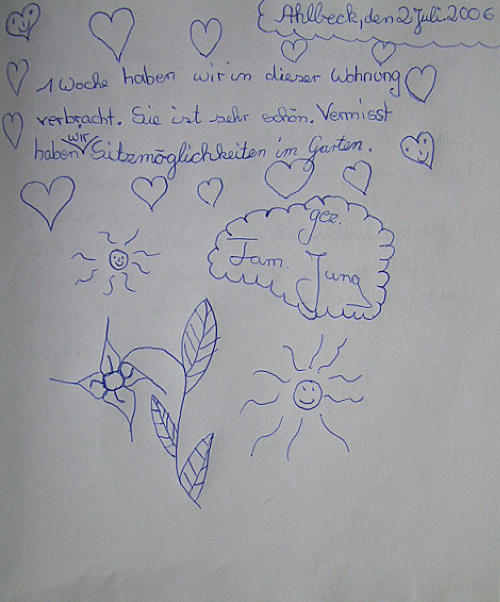 Ahlbeck, den 2 Juli. 2006
1 Woche haben wir in dieser Wohnung
verbracht. Sie ist sehr schön. Vermisst
haben wir Sitzmöglichkeiten im Garten.
gez.
Fam. Jung